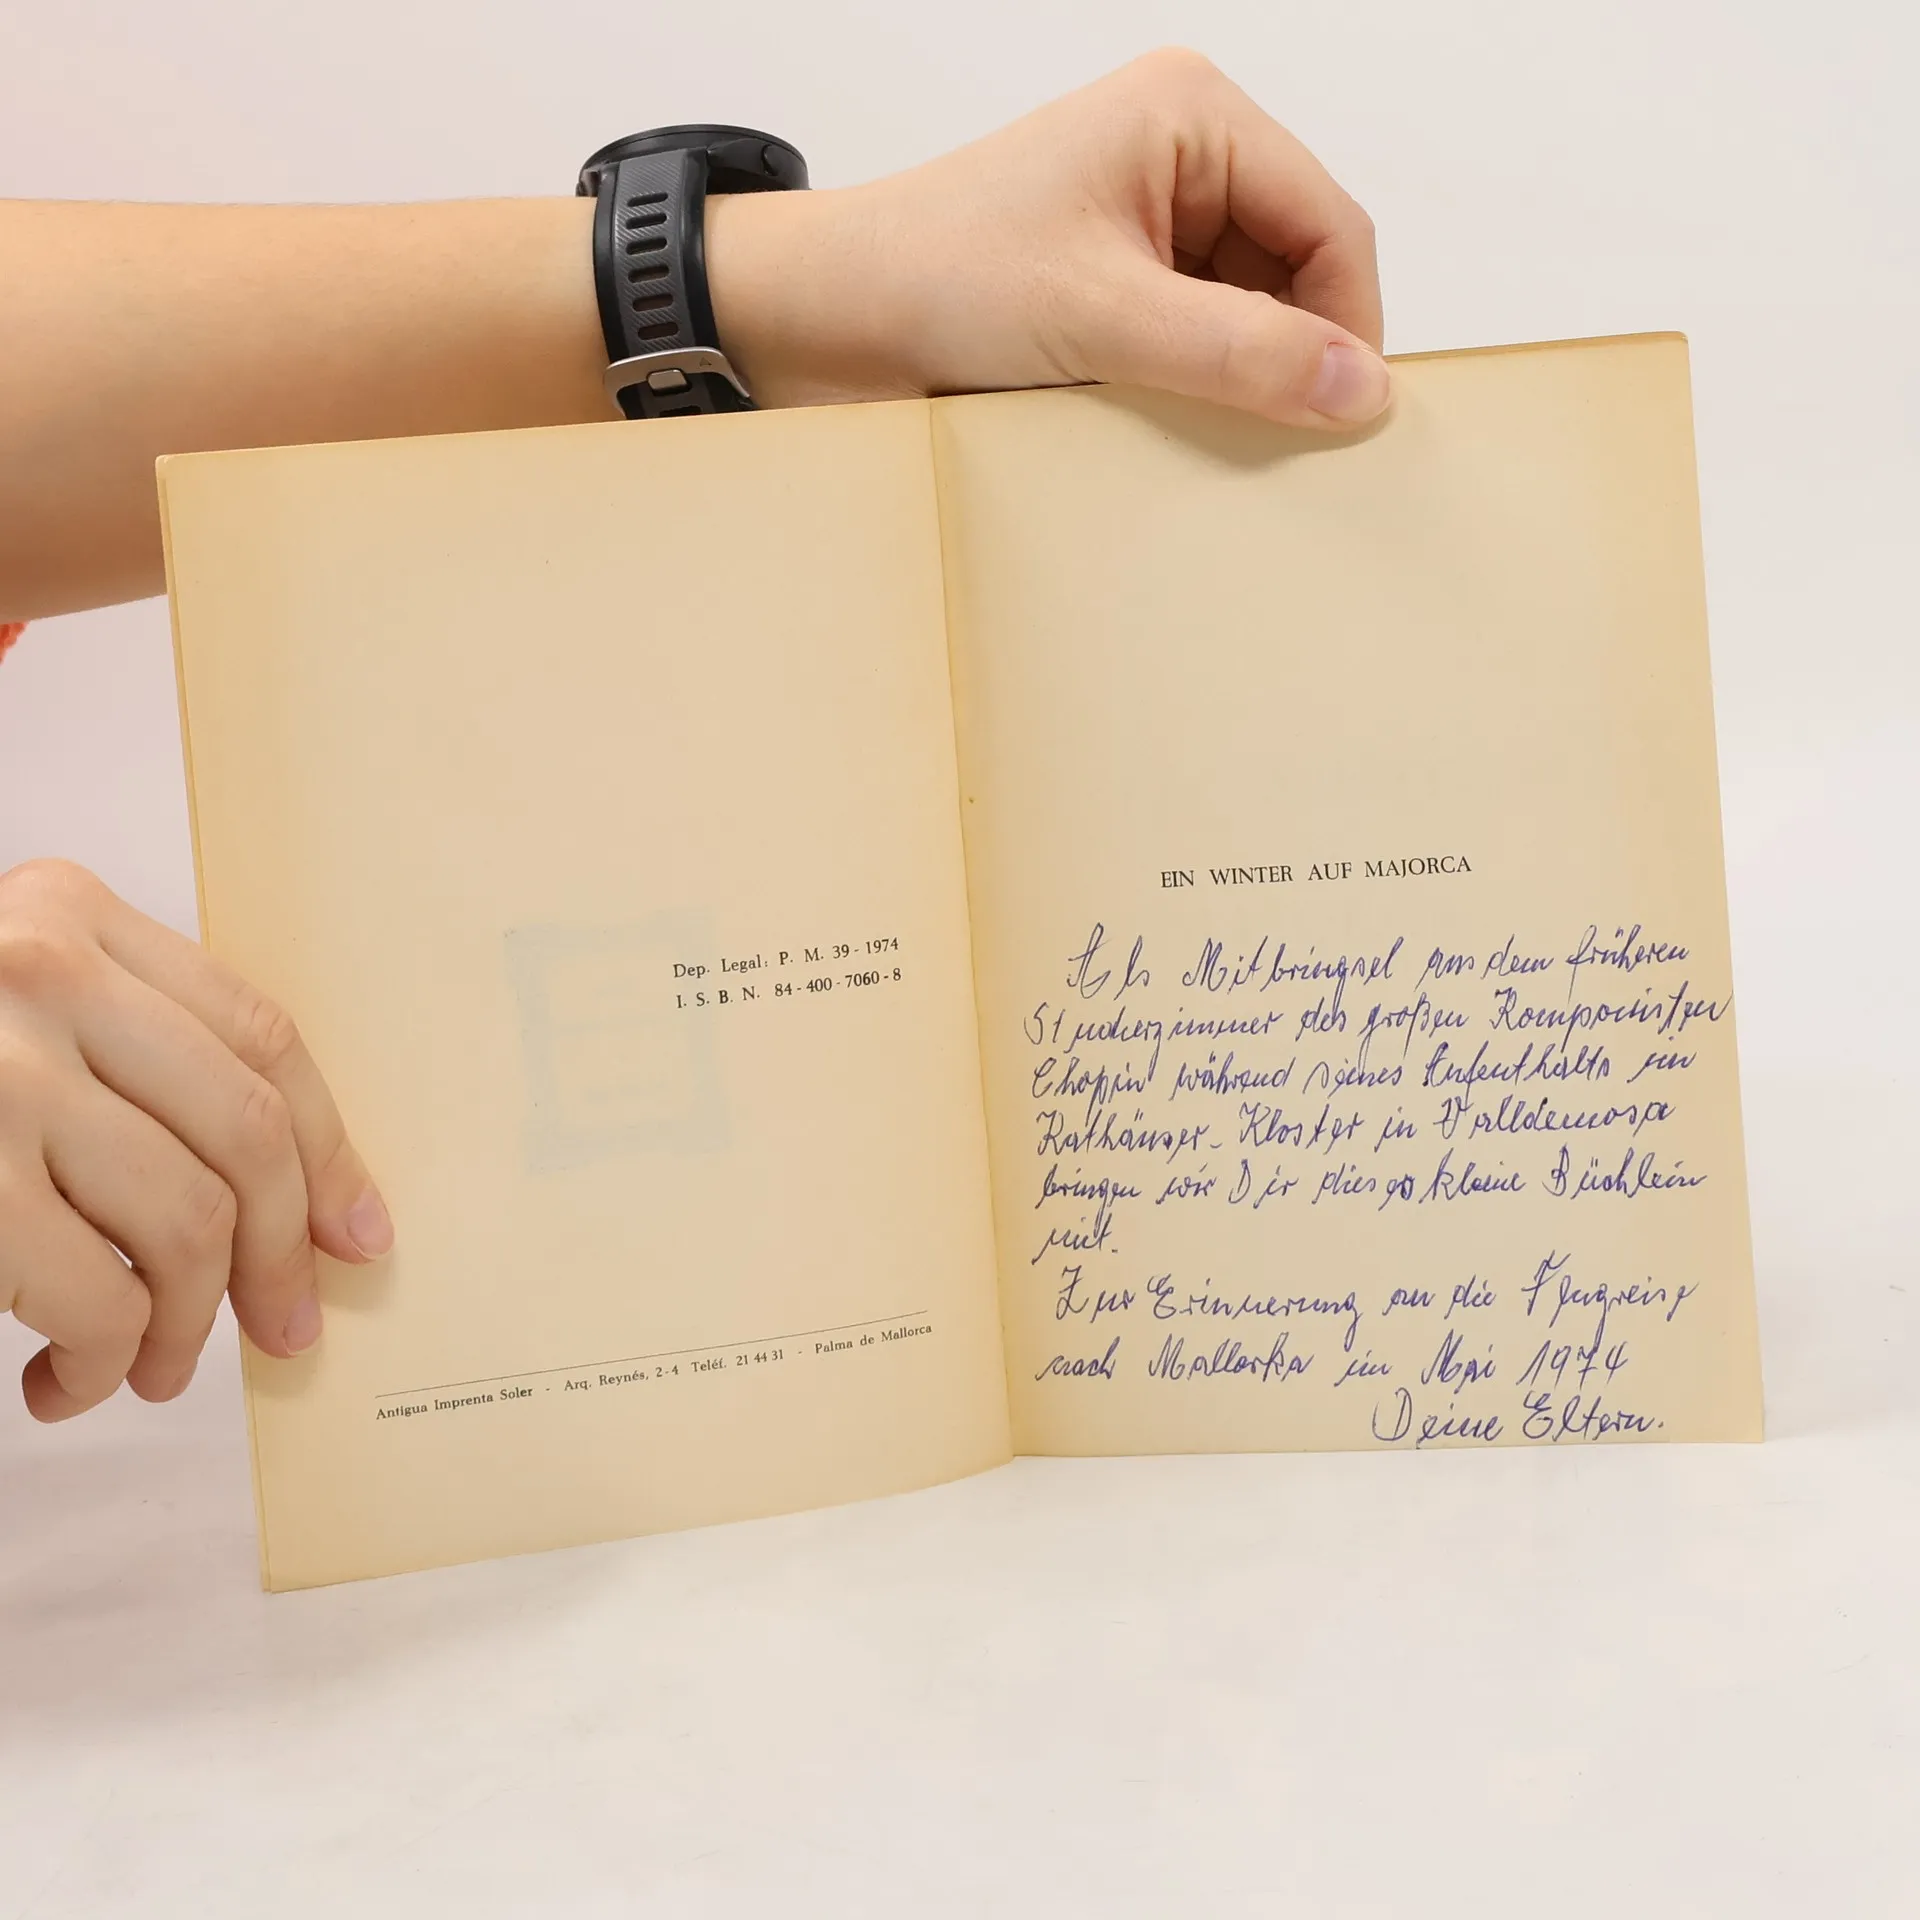 Dep. Legal: P. M. 39 - 1974
I. S. B. N. 84 - 400 - 7060 - 8
Antigua Imprenta Soler - Arq. Reynés, 2 - 4 Teléf. 21 44 31 - Palma de Mallorca
EIN WINTER AUF MAJORCA
Als Mitbringsel aus dem früheren
Studierzimmer des großen Komponisten
Chopin während seines Aufenthalts im
Kathäuser-Kloster in Valldemosa
bringen wir Dir dieses kleine Büchlein
mit.
Zur Erinnerung an die Flugreise
nach Mallorka im Mai 1974
Deine Eltern.